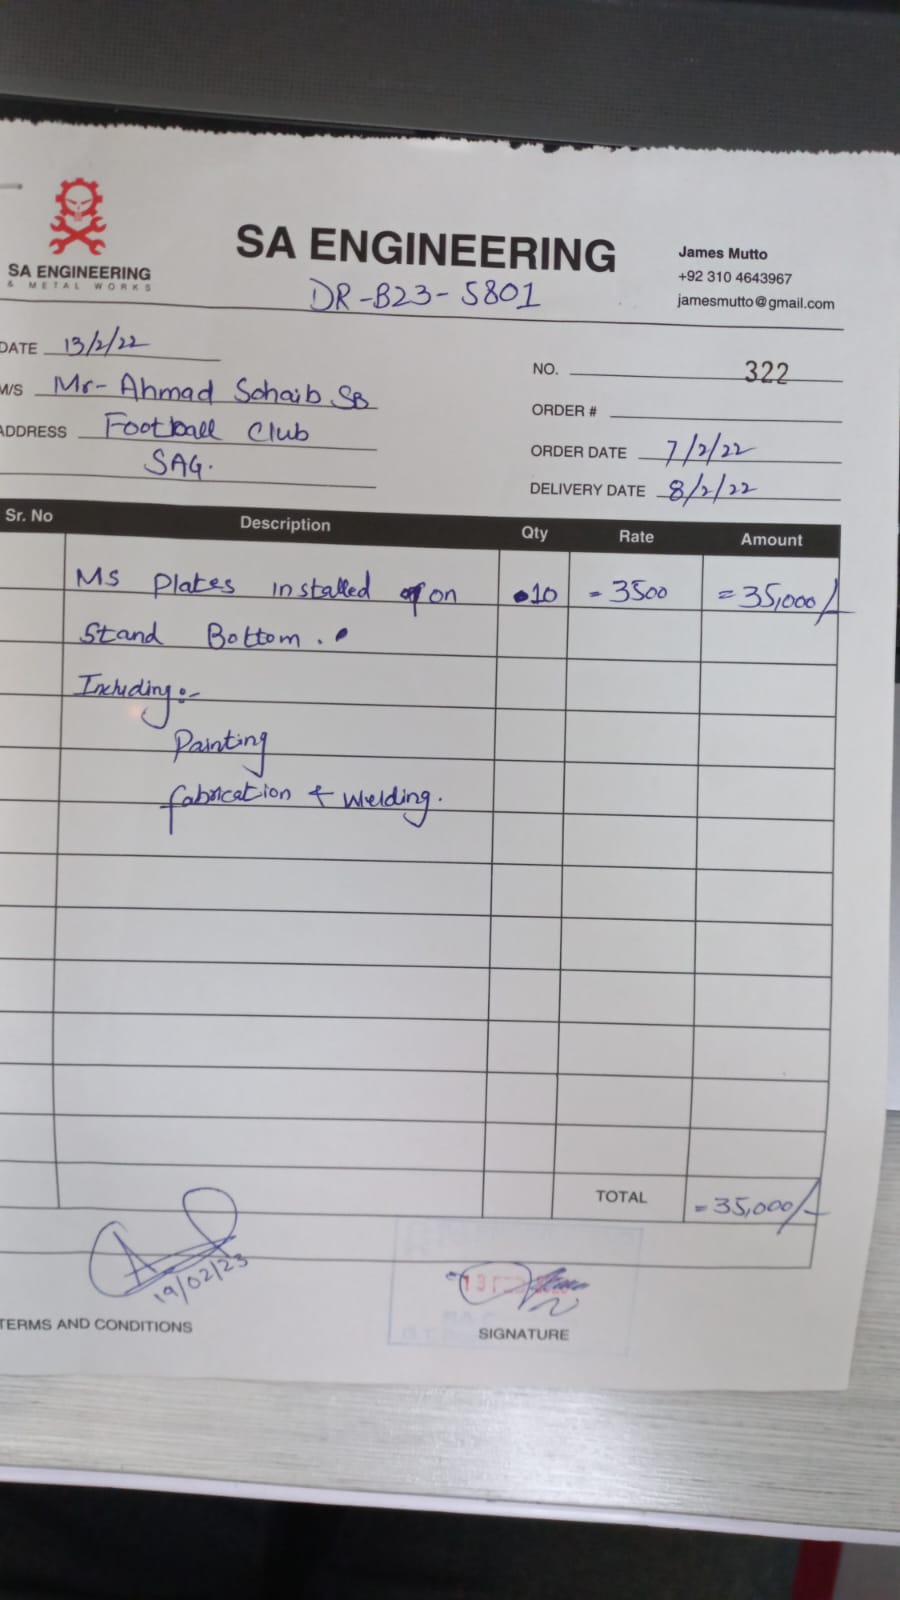 SA ENGINEERING
& METAL WORKS
SA ENGINEERING
DR-B23-5801
James Mutto
+92 310 4643967
jamesmutto@gmail.com
DATE 13/2/22
M/S Mr- Ahmad Sohaib SB
ADDRESS Football Club
SAG.
NO. 322
ORDER #
ORDER DATE 7/2/22
DELIVERY DATE 8/2/22
Sr. No Description Qty Rate Amount
MS Plates installed on 10 = 3500 = 35,000/-
Stand Bottom.
Including:-
Painting
fabrication & Welding.
TOTAL = 35,000/-
19/02/23
TERMS AND CONDITIONS
SIGNATURE